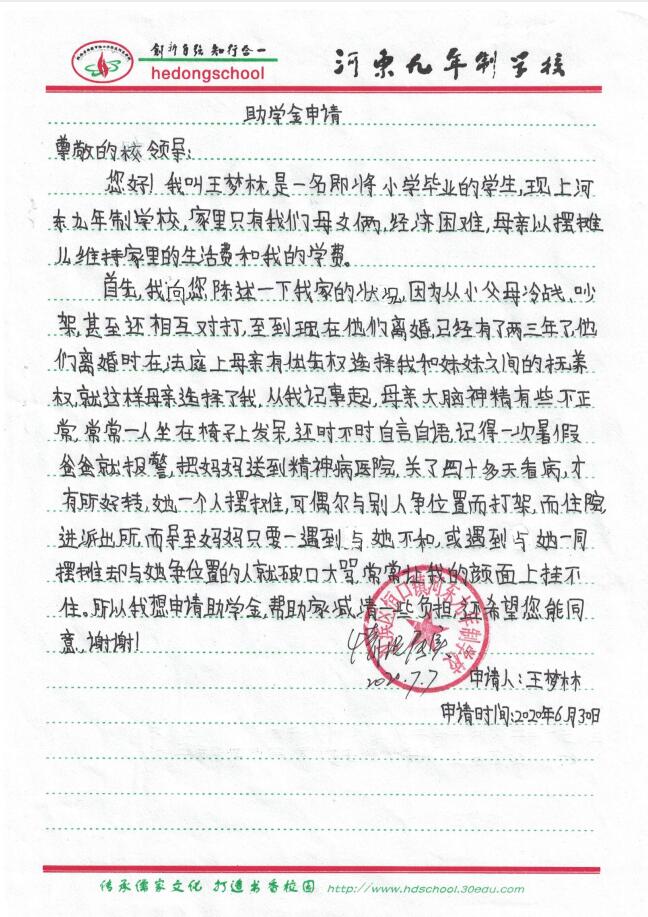 创新自强 知行合一
hedongschool
河东九年制学校
助学金申请
尊敬的校领导:
您好!我叫王梦林,是一名即将小学毕业的学生,现上河
东九年制学校,家里只有我们母女俩,经济困难,母亲以摆摊
儿维持家里的生活费和我的学费。
首先,我向您陈述一下我家的状况,因为从小父母冷战、吵
架,甚至还相互对打,至到现在他们离婚,已经有了两三年了,他
们离婚时在法庭上母亲有优先权选择我和妹妹之间的抚养
权,就这样母亲选择了我,从我记事起,母亲大脑神精有些不正
常,常常一人坐在椅子上发呆,还时不时自言自语,记得一次暑假
爸爸就报警,把妈妈送到精神病医院,关了四十多天看病,才
有所好转,她一个人摆摊,可偶尔与别人争位置而打架,而住院
进派出所,而导至妈妈只要一遇到与她不和,或遇到与她一同
摆摊却与她争位置的人就破口大骂,常常让我的颜面上挂不
住。所以我想申请助学金,帮助家减清一些负担,还希望您能同
意,谢谢!
情况属实
2020.7.7
申请人:王梦林
申请时间:2020年6月30日
口镇河东九年制学校
传承儒家文化 打造书香校园 http://www.hdschool.30edu.com